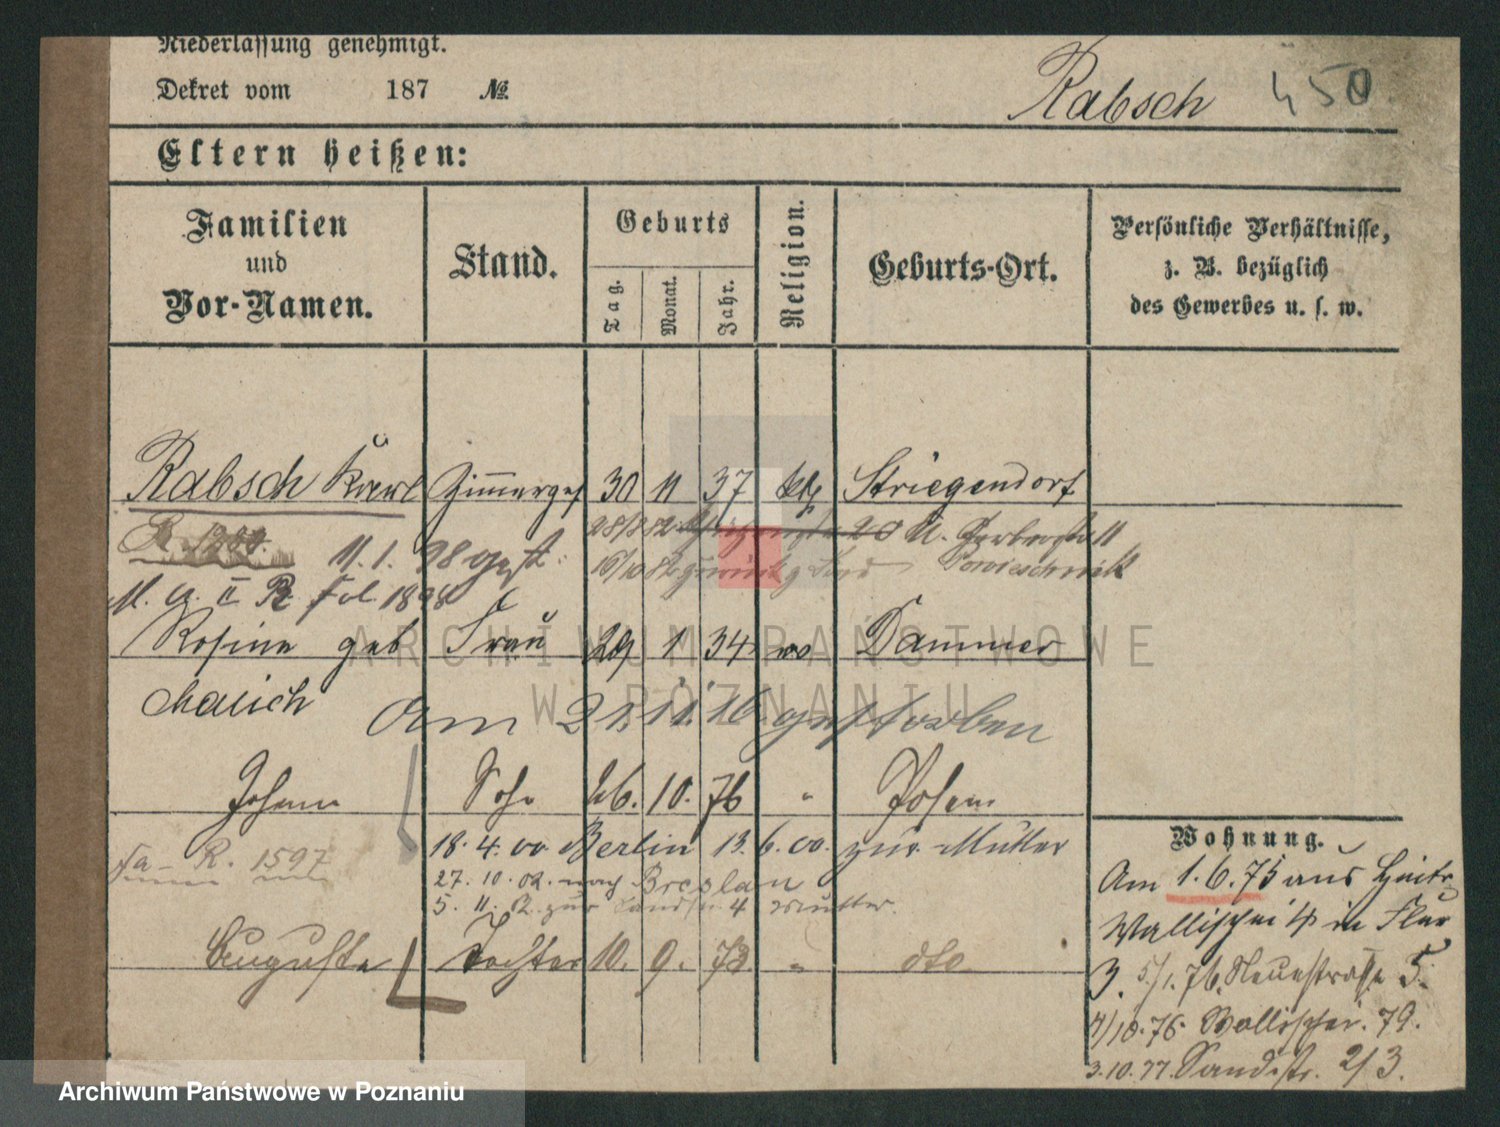 Niederlassung genehmigt.
Dekret vom 187 №
Rabsch 450
Eltern heißen:
Familien und Vor-Namen.
Stand.
Geburts
Tag. Monat. Jahr.
Religion.
Geburts-Ort.
Persönliche Verhältnisse, z. B. bezüglich des Gewerbes u. s. w.
Rabsch Karl Zimmerges 30 11 37 kth Striegendorf
11. 1. 98 gest.
II R Fol. 1898
Rosine geb Frau 29 1 34 Dammer
Malich
Am 21. 11. 16 gestorben
Johann Sohn 26. 10. 76 " Posen
18. 4. 00 Berlin 13. 6. 00. zur Mutter
R. 1597
27. 10. 02. nach Breslau
5. 11. zur Mutter.
Auguste Tochter 10. 9. 78. " dto
Wohnung.
Am 1. 6. 75 aus
Wallischei 4 in Flur
3. 5/1. 76. Neuestrasse 5.
4/10. 76. Wallischei. 79.
3. 10. 77. Sandstr. 2/3.
ARCHIWUM PAŃSTWOWE
W POZNANIU
Archiwum Państwowe w Poznaniu